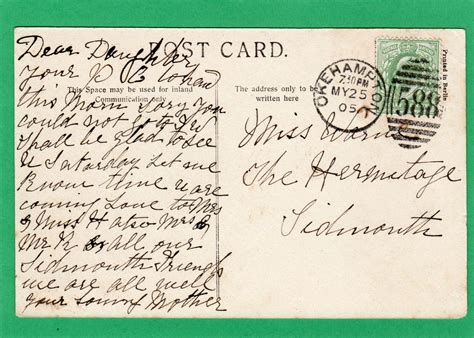 POST CARD.
This Space may be used for inland
Communication only
The address only to be
written here
Printed in Berlin
OKEHAMPTON
7.30PM
MY 25
05
588
Dear Daughter
Your P C to hand
this Morn Sory You
could not
Shall be glad to see
U Saturday Let me
Know time U are
coming Love to Mrs
& Miss H also Mrs &
Mr R & all our
Sidmouth Friends
we are all well
your loving Mother
Miss
The Hermitage
Sidmouth